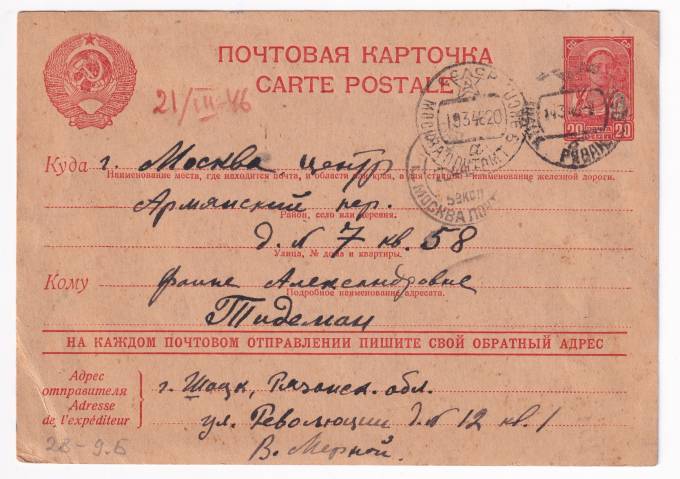 ПОЧТОВАЯ КАРТОЧКА
CARTE POSTALE
21/III-46
20 20
Куда г. Москва центр
Наименование места, где находится почта, и области или края, а для станции – наименование железной дороги.
Армянский пер.
Район, село или деревня.
д. N 7 кв. 58
Улица, № дома и квартиры.
Кому Фаине Александровне
Подробное наименование адресата.
Тидеман
НА КАЖДОМ ПОЧТОВОМ ОТПРАВЛЕНИИ ПИШИТЕ СВОЙ ОБРАТНЫЙ АДРЕС
Адрес
отправителя
Adresse
de l'expéditeur
г. Шацк, Рязанск. обл.
ул. Революции д. N 12 кв. 1
В. Мерной.
28-9.Б